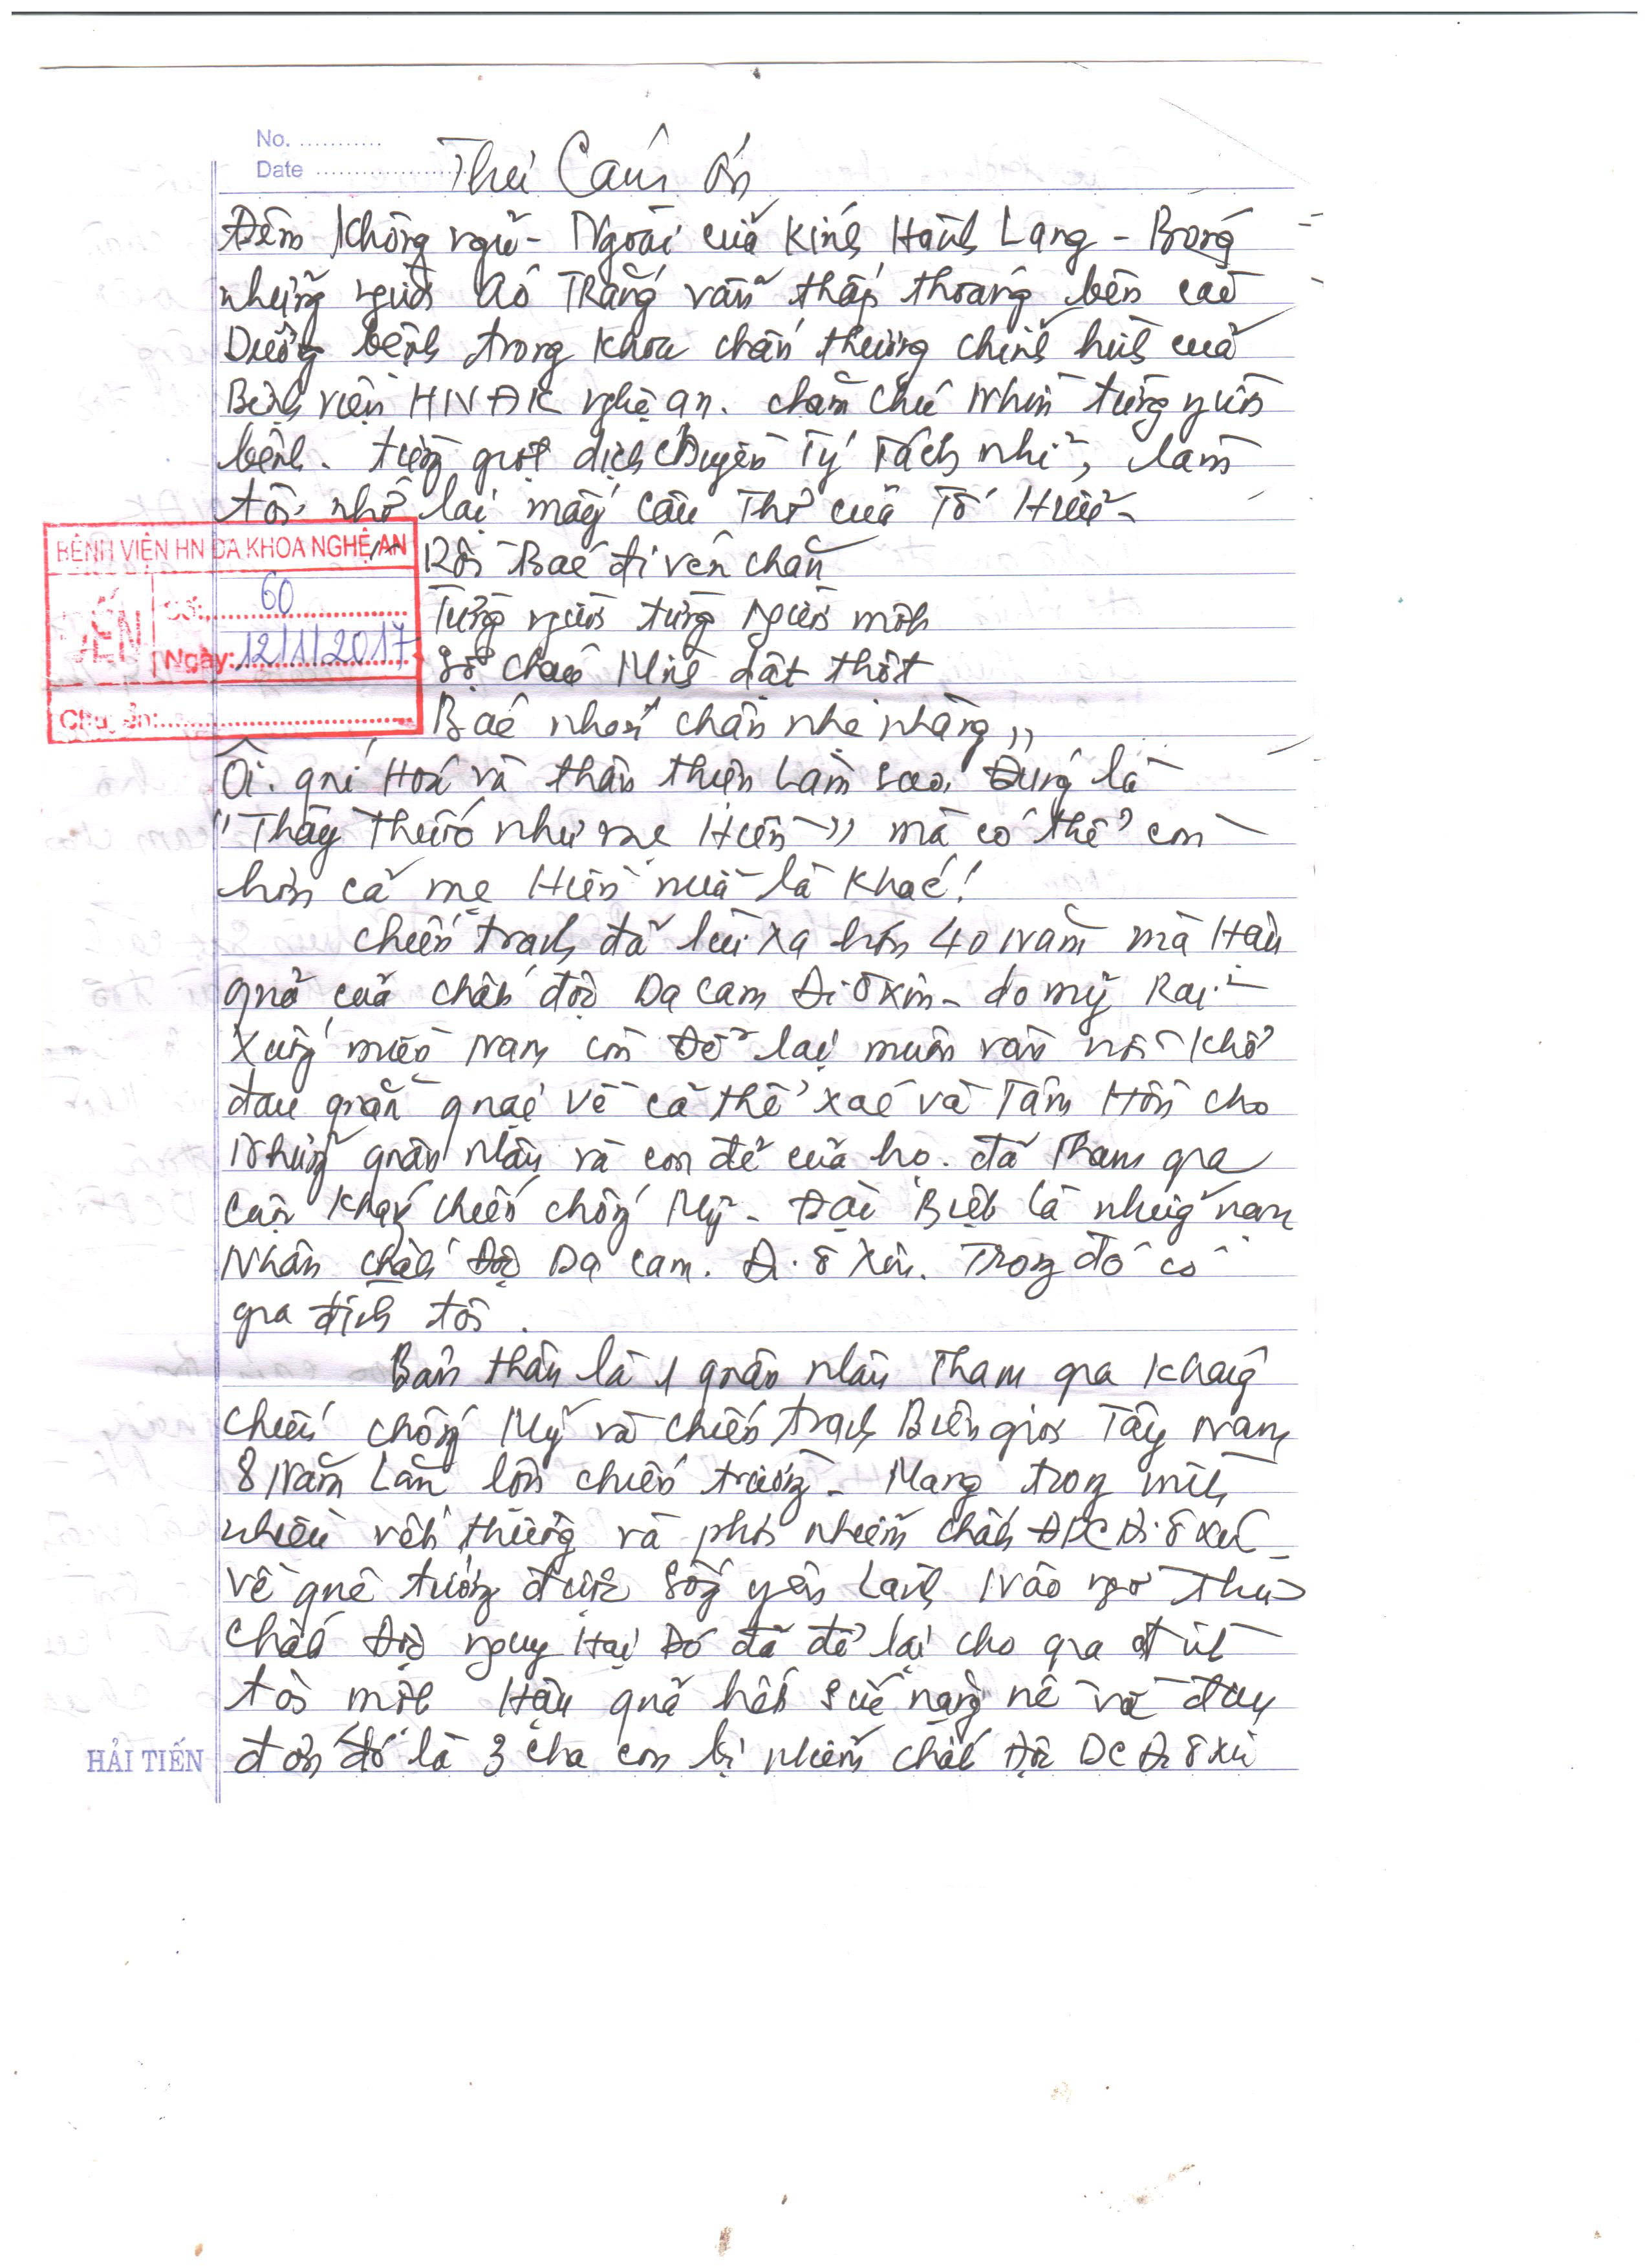 No. ............
Date ....................
Thư Cảm ơn
Đêm không ngủ - Ngoài cửa kính Hành Lang - Bóng
những người Áo Trắng vẫn thấp thoáng bên các
Giường bệnh trong khoa chấn thương chỉnh hình của
Bệnh viện HNĐK nghệ an. chăm chú nhìn từng người
bệnh. từng giọt dịch chuyền Tý Tách nhỉ, làm
tôi nhớ lại mấy câu Thơ của Tố Hữu -
BỆNH VIỆN HN ĐA KHOA NGHỆ AN
ĐẾN
Số: 60
Ngày: 12/1/2017
Chuyển:
Rồi Bác đi vén chăn
Từng người từng người một
Sợ cháu Mình dật thột
Bác nhón chân nhẹ nhàng"
Ôi. quí Hoá và thân thiện Làm sao, Đúng là
"Thầy Thuốc như mẹ Hiền" mà có thể còn
hơn cả mẹ Hiền nữa là khác!
chiến tranh đã lùi xa hơn 40 năm mà Hậu
quả của chất độc Da cam Đi ô xin - do mỹ Rải
xuống miền Nam còn Để lại muôn vàn nỗi khổ
đau quằn quại về cả thể xác và Tâm Hồn cho
Những quân nhân và con đẻ của họ. đã Tham gia
cuộc kháng chiến chống Mỹ - Đặc Biệt là những nạn
Nhân chất độc Da cam. Đi ô xin. Trong đó có
gia đình tôi.
Bản thân là 1 quân nhân Tham gia kháng
chiến chống Mỹ và chiến tranh Biên giới Tây Nam
8 Năm Lăn lộn chiến trường - Mang trong mình
nhiều vết thương và phơi nhiễm chất ĐDC Đi ô xin
về quê tưởng được sống yên Lành Nào ngờ thứ
chất độc nguy Hại Đó đã để lại cho gia đình
tôi một Hậu quả hết sức nặng nề và đau
đớn đó là 3 cha con bị nhiễm chất độc DC Đi ô xin
HẢI TIẾN